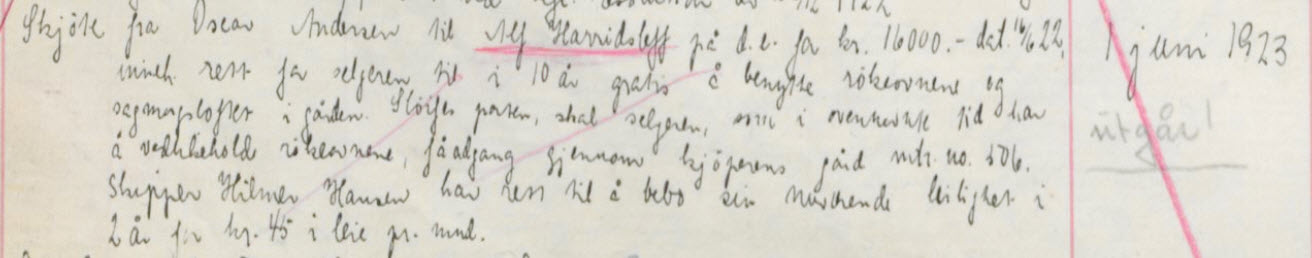 Skjöte fra Oscar Andersen til Alf Harridsleff på d.e. for kr. 16000.- dat. 16/6 22, 1 juni 1923
inneh. rett for selgeren til i 10 år gratis å benytte rökeovnene og
sagmagsloftet i gården. Slöifes porten, skal selgeren, som i ovennevnte tid har
å vedlikeholde rökeovnene, få adgang gjennom kjöperens gård mtr. no. 506.
utgår!
Skipper Hilmer Hansen har rett til å bebo sin nuværende leilighet i
2 år for kr. 45 i leie pr. mnd.